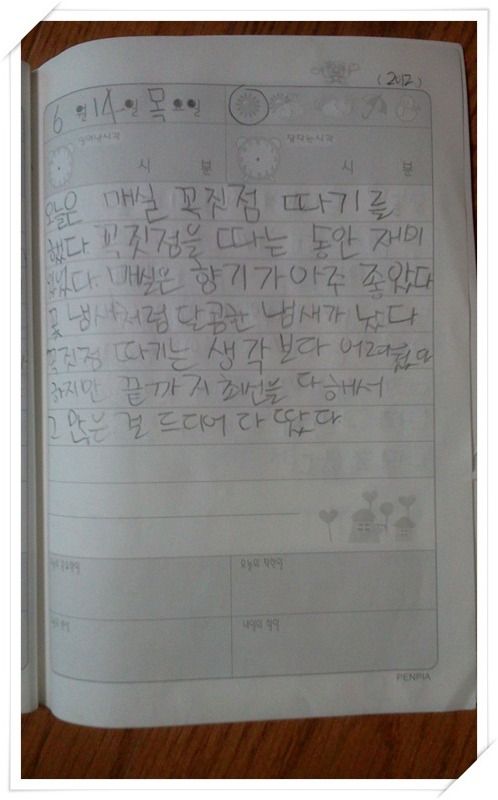 (2012)
6월 14일 목요일
일어난시각
잠자는시각
시 분
시 분
오늘은 매실 꼭짓점 따기를
했다. 꼭짓점을 따는 동안 재미
있었다. 매실은 향기가 아주 좋았다
꽃 냄새처럼 달콤한 냄새가 났다
꼭짓점 따기는 생각보다 어려웠다
하지만 끝까지 최선을 다해서
그 많은 걸 드디어 다 땄다.
오늘의 착한일
내일의 할일
PENPIA